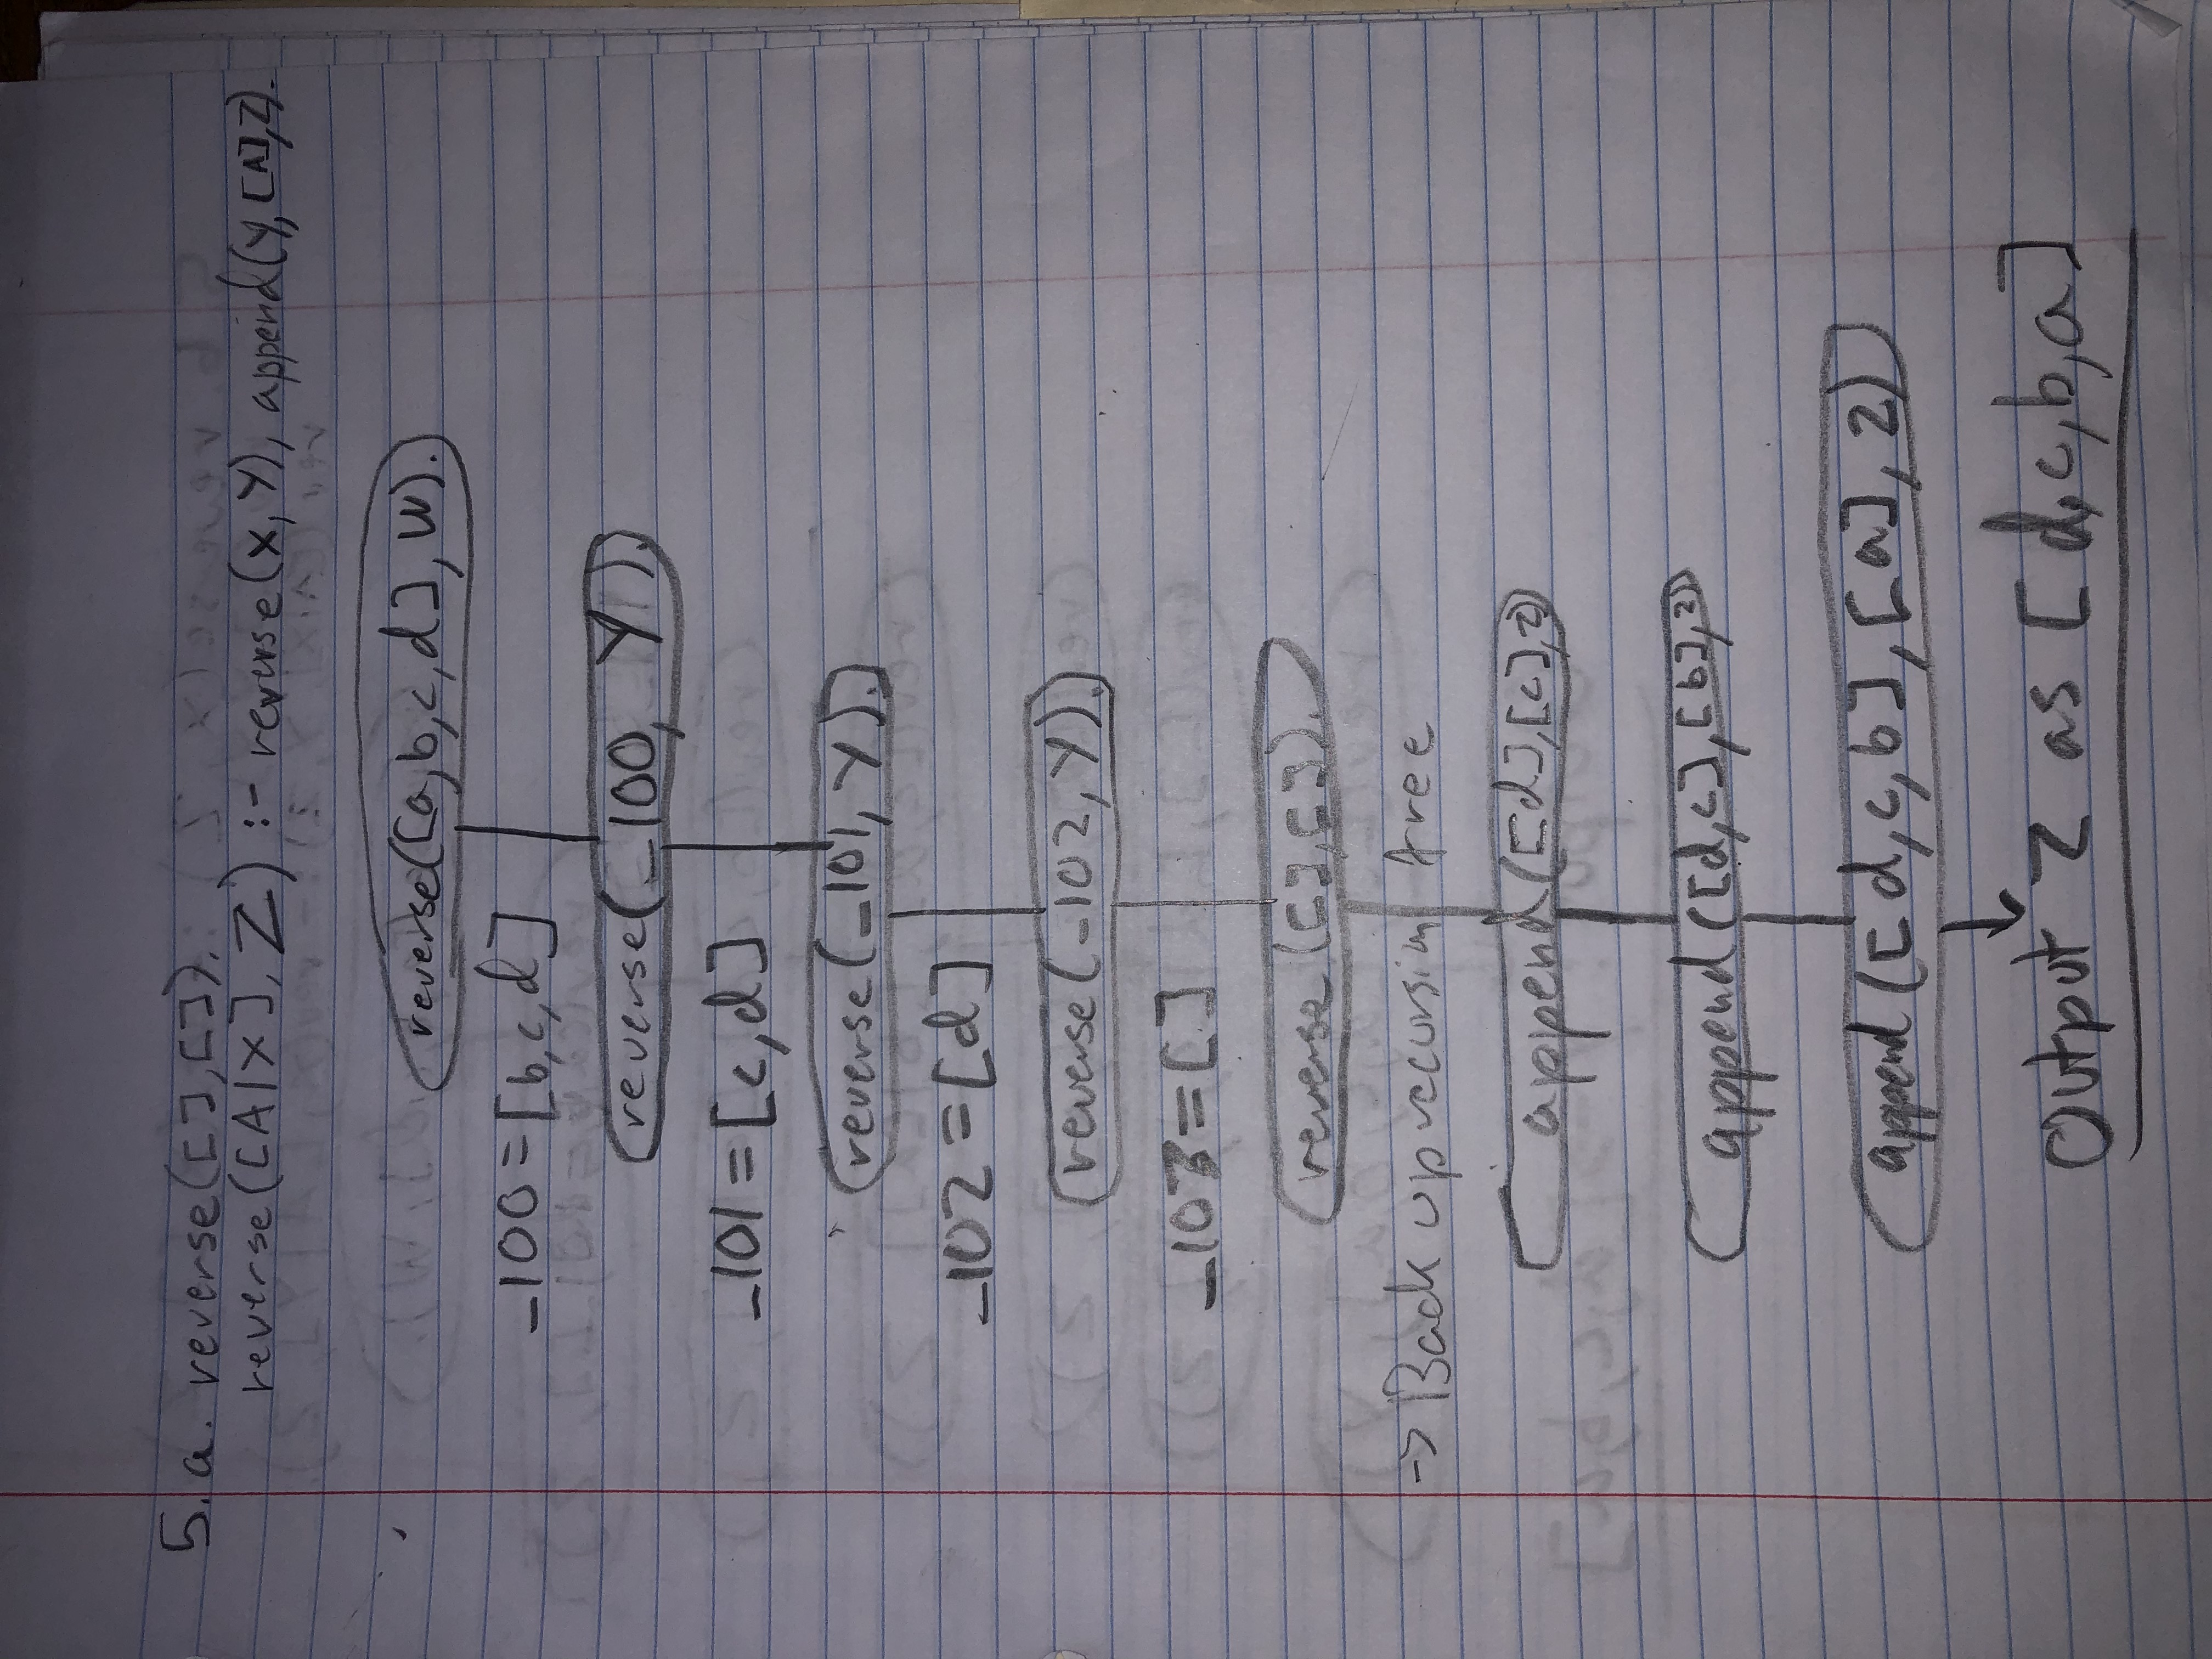 5. a. reverse([],[]).
reverse([A|X], Z) :- reverse(X, Y), append(Y, [A], Z).
reverse([a,b,c,d], W).
_100 = [b,c,d]
reverse(_100, Y).
_101 = [c,d]
reverse(_101, Y).
_102 = [d]
reverse(_102, Y).
_103 = []
reverse([],[]).
-> Back up recursion tree
append([d],[c],Z)
append([d,c],[b],Z)
append([d,c,b],[a],Z)
Output Z as [d,c,b,a]